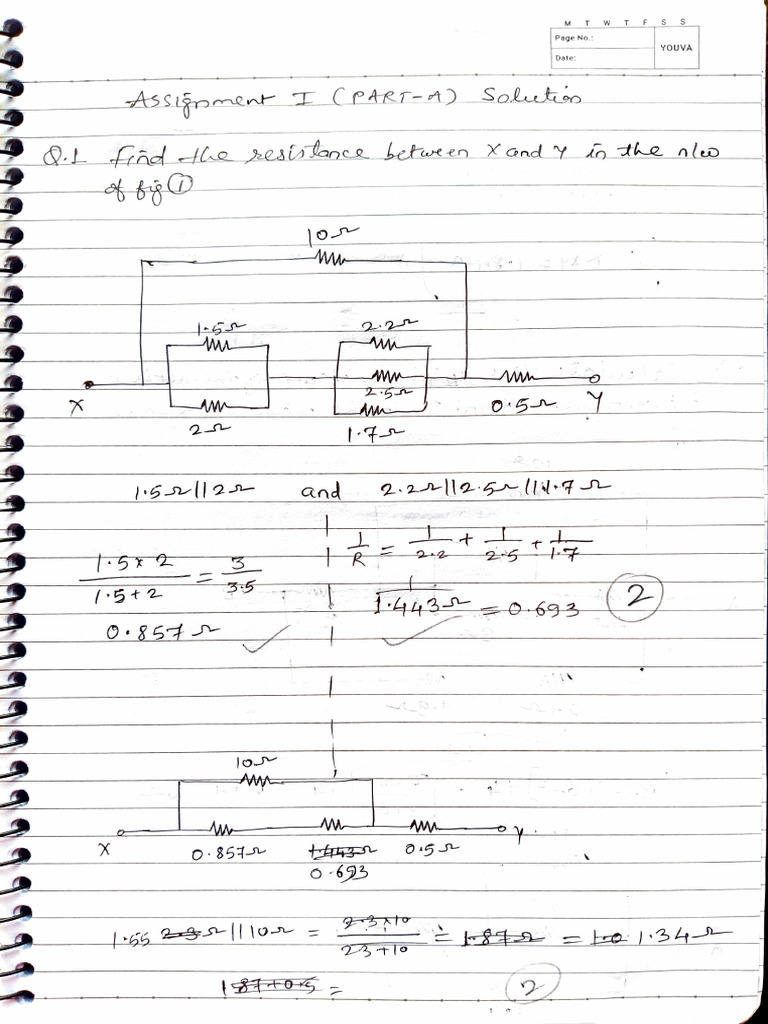 M T W T F S S
Page No.:
Date:
YOUVA
Assignment I (PART-A) Solution
Q.1 find the resistance between X and Y in the n/w
of fig ①
10Ω
1.5Ω 2.2Ω
X 2.5Ω 0.5Ω Y
2Ω 1.7Ω
1.5Ω||2Ω and 2.2Ω||2.5Ω||1.7Ω
1.5×2 / 1.5+2 = 3 / 3.5
1/R = 1/2.2 + 1/2.5 + 1/1.7
1/1.443Ω = 0.693 ②
0.857Ω
10Ω
X Y
0.857Ω 1.443Ω 0.5Ω
0.693
1.55 2.3Ω||10Ω = 2.3×10 / 2.3+10 = 1.87Ω = 1.34Ω
1.87+0.5 = ②